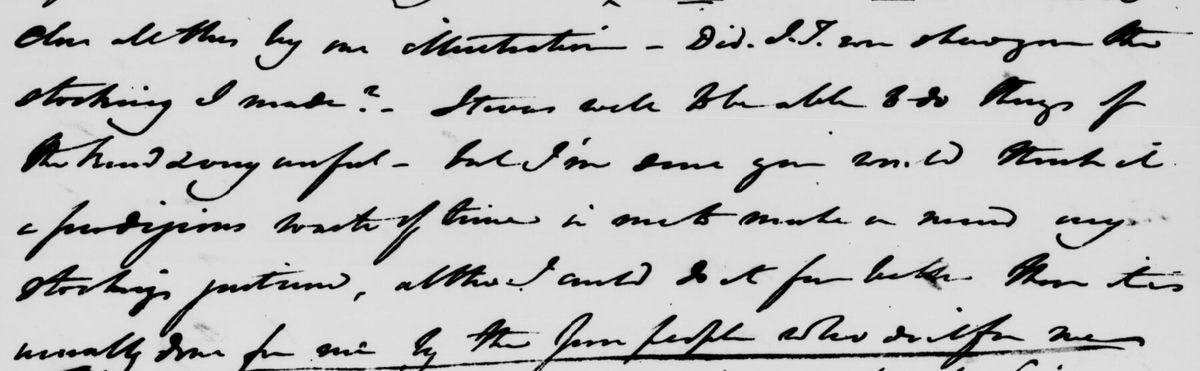 all this by one illustration – Did. I.T. ever shew you the
stocking I made? – It was well to be able to do things of
the kind & very useful – but I'm sure you would think it
a prodigious waste of time in me to make or mend my
stockings just now, altho' I could do it far better than it is
usually done for me by the poor people who do it for me